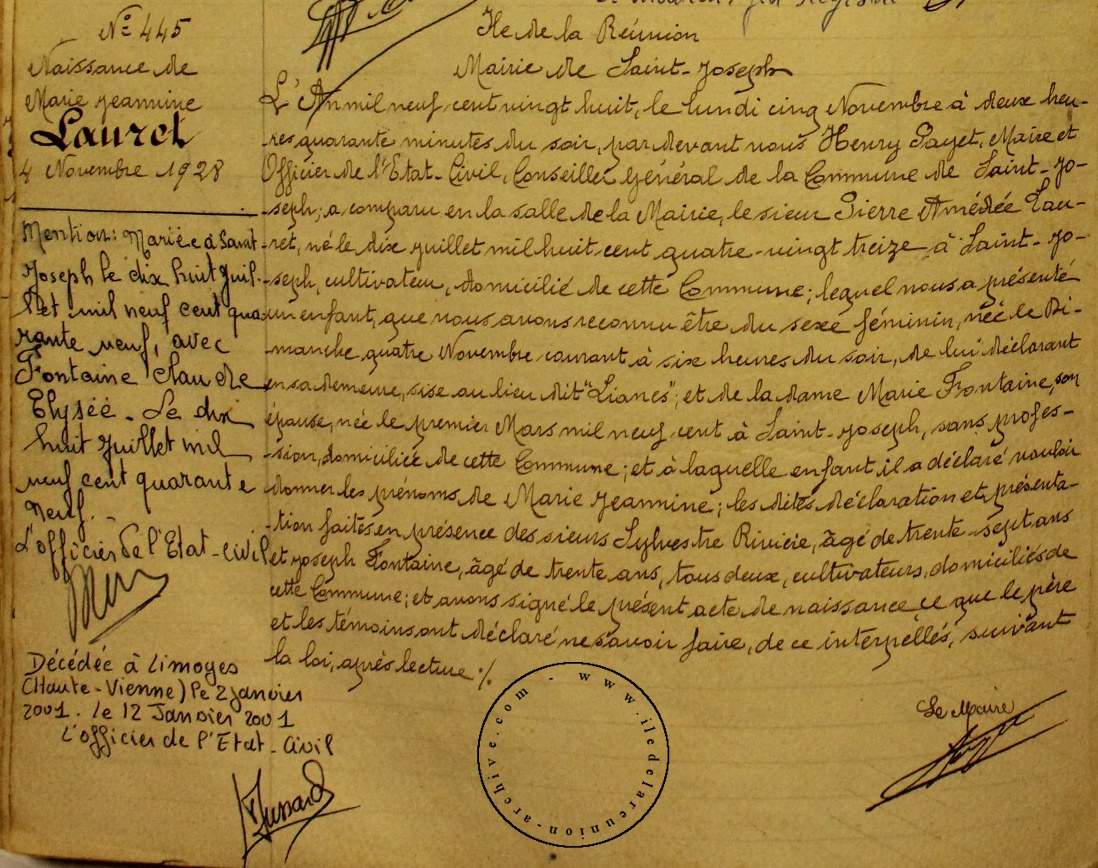 N° 445
Naissance de
Marie Jeannine
Lauret
4 Novembre 1928
Mention: Mariée à Saint-
Joseph le dix huit Juil-
let mil neuf cent qua-
rante neuf, avec
Fontaine Claude
Elysée - Le dix
huit Juillet mil
neuf cent quarante
neuf.
L'officier de l'Etat-civil
Décédée à Limoges
(Haute-Vienne) le 2 janvier
2001. le 12 Janvier 2001
L'officier de l'Etat-Civil
Ile de la Réunion
Mairie de Saint-Joseph
L'An mil neuf cent vingt huit, le lundi cinq Novembre à deux heu-
res quarante minutes du soir, par devant nous Henry Payet, Maire et
Officier de l'Etat-Civil, Conseiller général de la Commune de Saint-Jo-
seph; a comparu en la salle de la Mairie, le sieur Pierre Amédée Lau-
ret, né le dix juillet mil huit cent quatre-vingt treize à Saint-Jo-
seph, cultivateur, domicilié de cette Commune; lequel nous a présenté
un enfant, que nous avons reconnu être du sexe féminin, née le Di-
manche quatre Novembre courant à six heures du soir, de lui déclarant
en sa demeure, sise au lieu dit "Lianes"; et de la dame Marie Fontaine, son
épouse, née le premier Mars mil neuf cent à Saint-Joseph, sans profes-
sion, domiciliée de cette Commune; et à laquelle enfant il a déclaré vouloir
donner les prénoms de Marie Jeannine; les dites déclaration et présenta-
tion faites en présence des sieurs Sylvestre Rivière, âgé de trente-sept ans
et Joseph Fontaine, âgé de trente ans, tous deux, cultivateurs, domiciliés de
cette Commune; et avons signé le présent acte de naissance ce que le père
et les témoins ont déclaré ne savoir faire, de ce interpellés, suivant
la loi, après lecture ./.
Le Maire
www.iledelareunion-archive.com